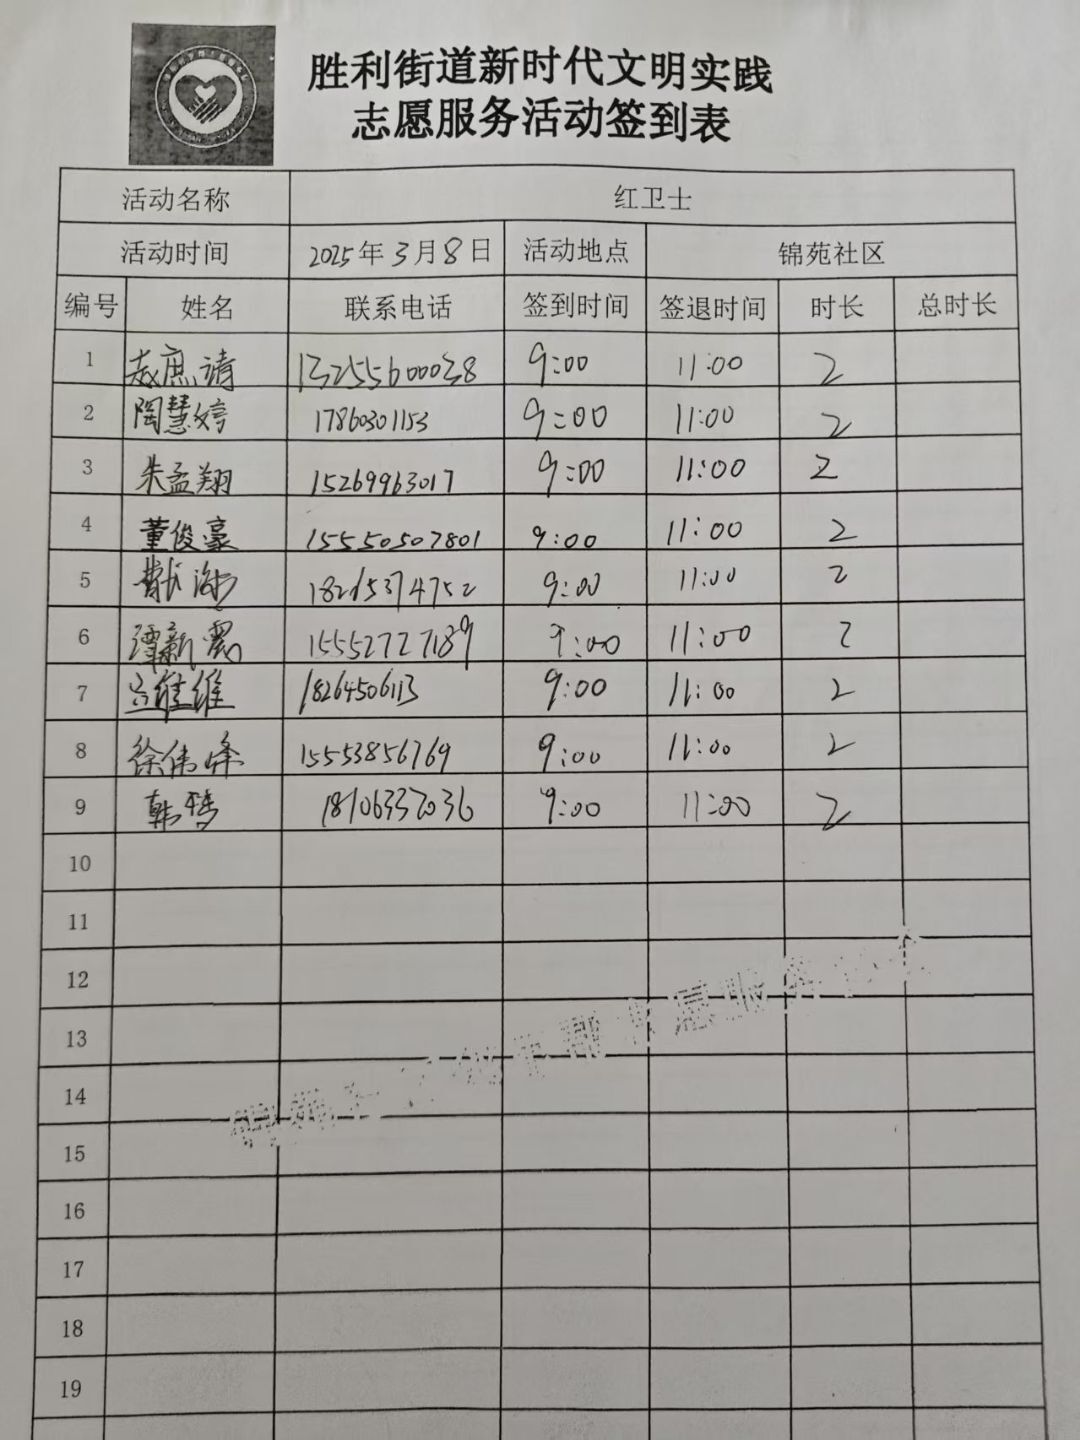 胜利街道新时代文明实践
志愿服务活动签到表
活动名称 红卫士
活动时间 2025年3月8日 活动地点 锦苑社区
编号 姓名 联系电话 签到时间 签退时间 时长 总时长
1 赵庶靖 13255600038 9:00 11:00 2
2 陶慧婷 17860301153 9:00 11:00 2
3 朱孟翔 15269963017 9:00 11:00 2
4 董俊豪 15550507801 9:00 11:00 2
5 18265374752 9:00 11:00 2
6 谭新 15552727189 9:00 11:00 2
7 维维 18264506113 9:00 11:00 2
8 徐伟峰 15553856769 9:00 11:00 2
9 韩 18106337036 9:00 11:00 2
10
11
12
13
14
15
16
17
18
19
愿服务